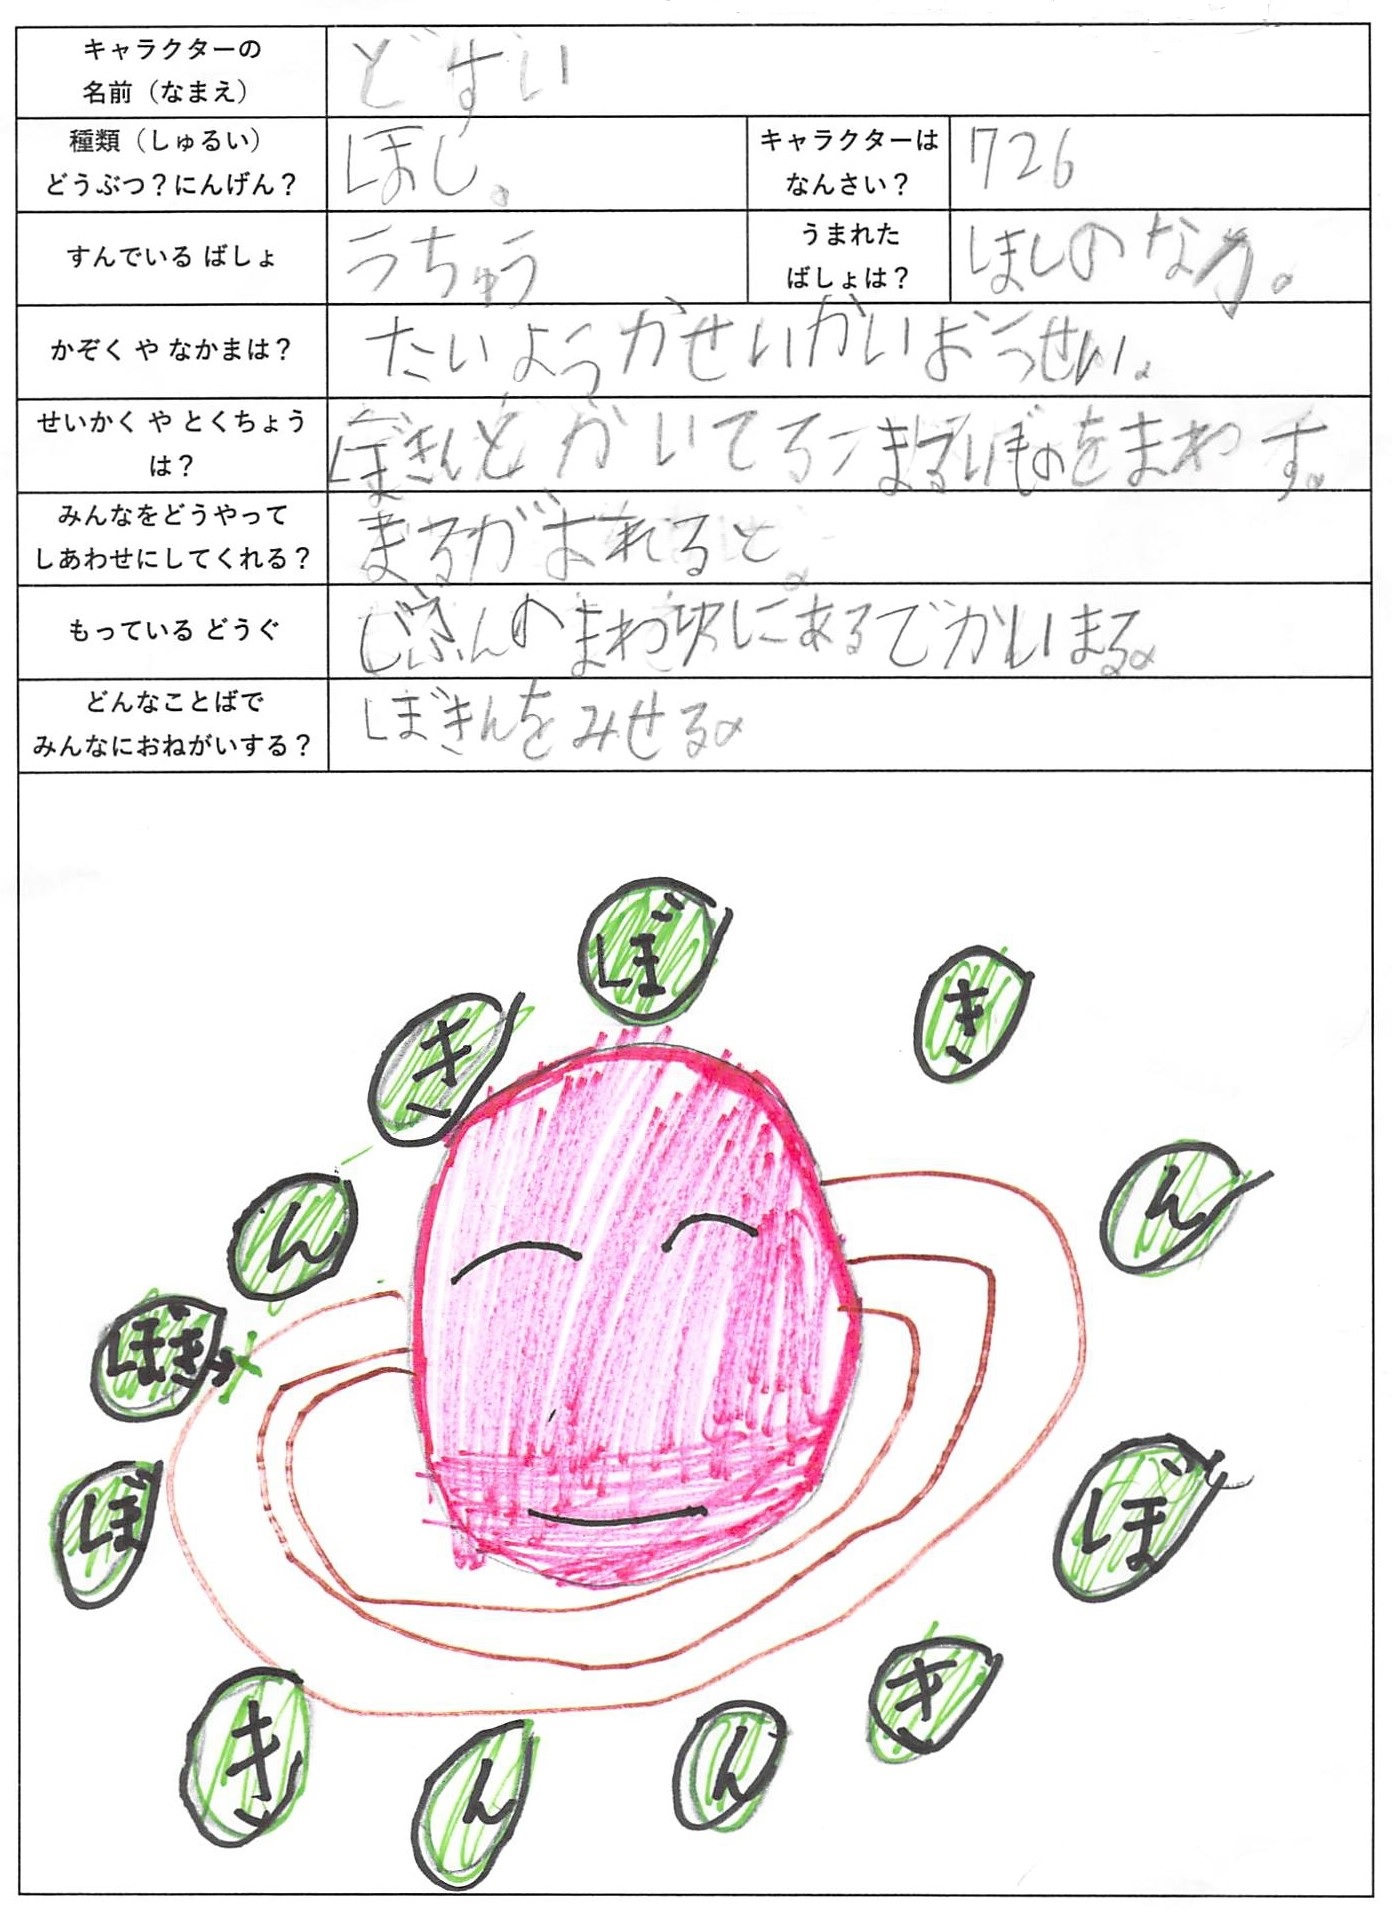 キャラクターの
名前（なまえ）
どすい
種類（しゅるい）
どうぶつ？にんげん？
ほし。
キャラクターは
なんさい？
726
すんでいる ばしょ
うちゅう
うまれた
ばしょは？
ほしのなか。
かぞく や なかまは？
たいようかせいかいおうせい。
せいかく や とくちょう
は？
ぼきんとかいてろうまるいものをまわす。
みんなをどうやって
しあわせにしてくれる？
まるがおれると。
もっている どうぐ
じぶんのまわりにあるでかいまる。
どんなことばで
みんなにおねがいする？
ぼきんをみせる。
ぼ
き
き
ん
ん
ぼき
ぼ
ぼ
き
き
ん
ん